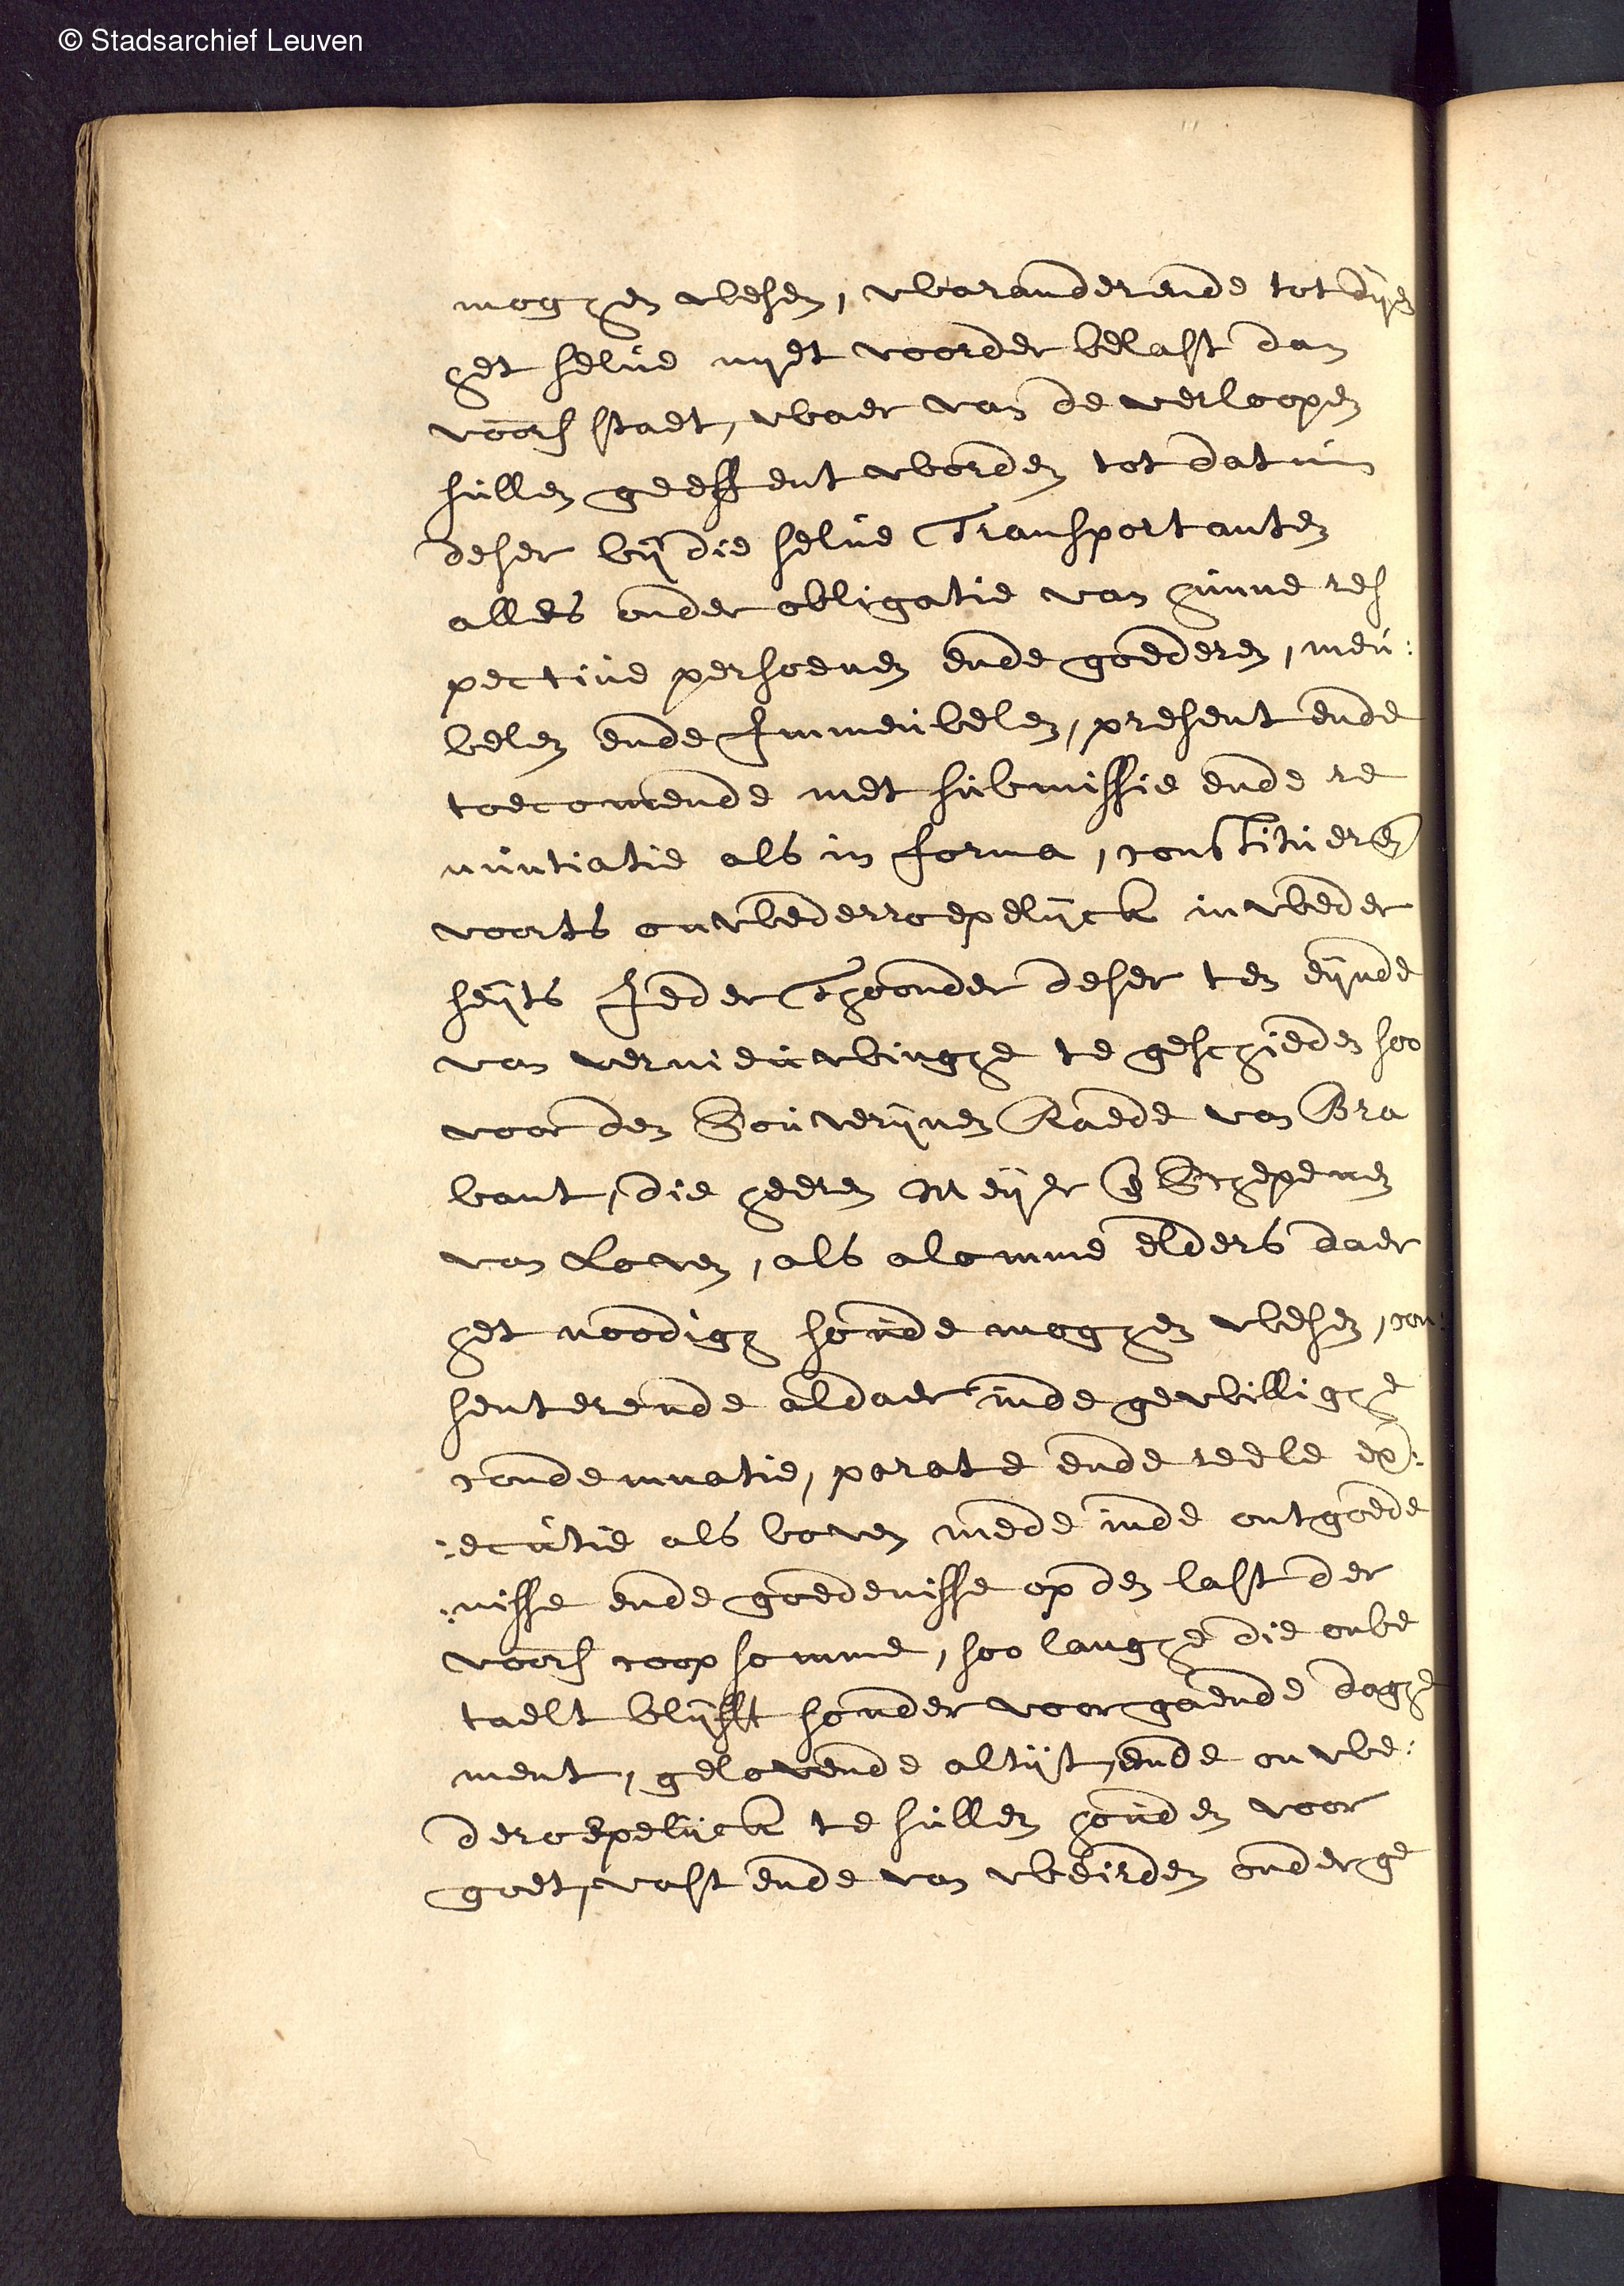 © Stadsarchief Leuven
moghen wesen, waranderende tot dyen
het selve nyet voorder belast dan
voors staet, waer van de verloopen
sullen geeffent worden tot datum
deser bij die selve Transportanten
alles onder obligatie van hunne res
pective persoenen ende goederen, meu:
belen ende Immeubelen, present ende
toecomende met submissie ende re
nuntiatie als in forma, constitueren
voorts onwederroepelijck in weder
seijts Jeder Thoonder deser ten eijnde
van vernieuwinghe te geschieden soo
voor den Souverijnen Raede van Bra
bant, die heeren Meijer en Schepenen
van Loven, als alomme elders daer
het noodigh soude moghen wesen, con:
senterende aldaer inde gewillighe
condemnatie, parate ende reele ex:
:ecutie als boven mede inde ontgoede
:nisse ende goedenisse op den last der
voors coopsomme, soo langhe die onbe
taelt blijfft sonder voorgaende daghe
ment, gelovende altijt, ende onwe:
deroepelijck te sullen houden voor
goet, vast ende van weirden onder ge